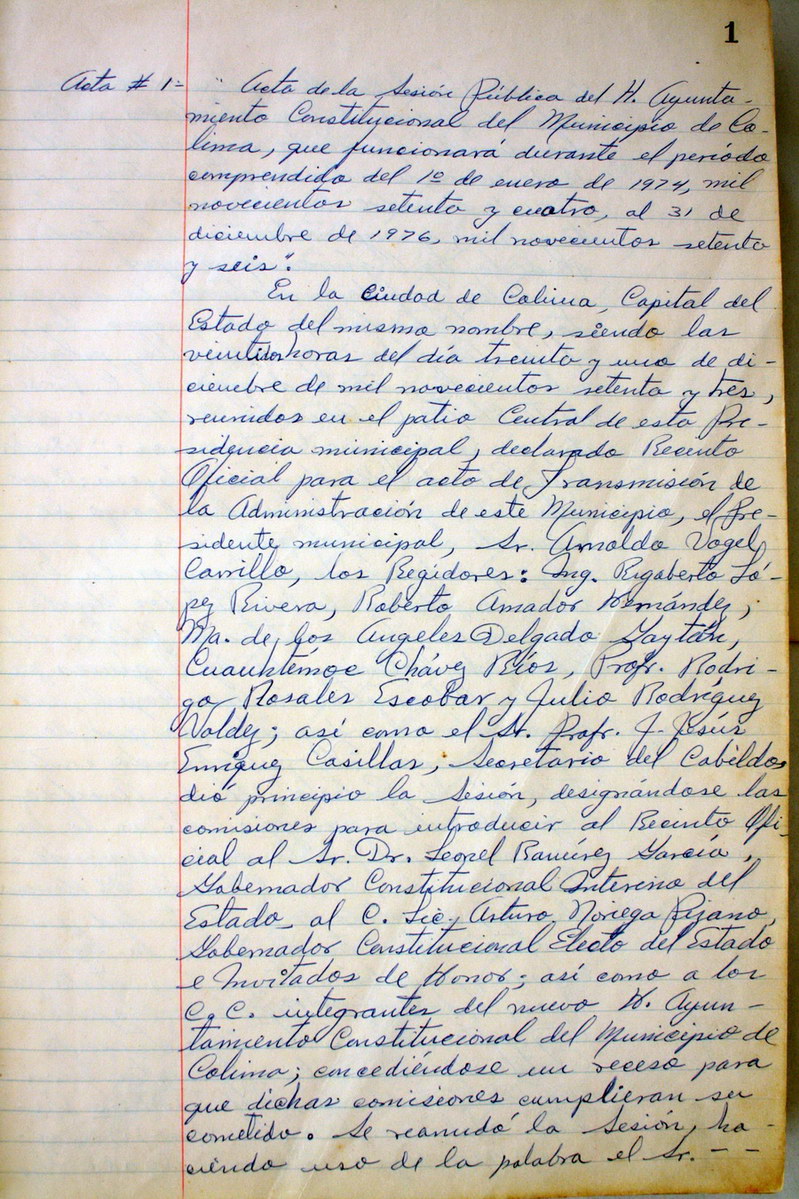 1
Acta # 1= "Acta de la Sesión Pública del H. Ayunta-
miento Constitucional del Municipio de Co-
lima, que funcionará durante el período
comprendido del 1º de enero de 1974, mil
novecientos setenta y cuatro, al 31 de
diciembre de 1976, mil novecientos setenta
y seis".
En la Ciudad de Colima, Capital del
Estado del mismo nombre, siendo las
veintidos horas del día treinta y uno de di-
ciembre de mil novecientos setenta y tres,
reunidos en el patio Central de esta Pre-
sidencia municipal, declarado Recinto
Oficial para el acto de Transmisión de
la Administración de este Municipio, el Pre-
sidente municipal, Sr. Arnoldo Vogel
Carrillo, los Regidores: Ing. Rigoberto Ló-
pez Rivera, Roberto Amador Hernández,
Ma. de los Angeles Delgado Gaytán,
Cuauhtémoc Chávez Ríos, Profr. Rodri-
go Rosales Escobar y Julio Rodríguez
Valdez; así como el Sr. Profr. J. Jesús
Enríquez Casillas, Secretario del Cabildo,
dió principio la Sesión, designándose las
comisiones para introducir al Recinto Ofi-
cial al Sr. Dr. Leonel Ramírez García,
Gobernador Constitucional Interino del
Estado, al C. Lic. Arturo Noriega Pizano,
Gobernador Constitucional Electo del Estado
e Invitados de Honor; así como a los
C.C. integrantes del nuevo H. Ayun-
tamiento Constitucional del Municipio de
Colima; concediéndose un receso para
que dichas comisiones cumplieran su
cometido. Se reanudó la Sesión, ha-
ciendo uso de la palabra el Sr. - -